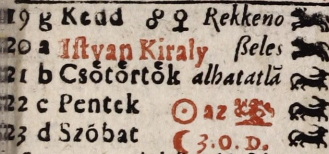 19 g Kedd ☍ ♀ Rekkeno
20 a Iſtvan Kiraly ßeles
21 b Csǒtǒrtǒk alhatatlā
22 c Pentek ☉ az
23 d Szǒbat ☾ 3. O. D.